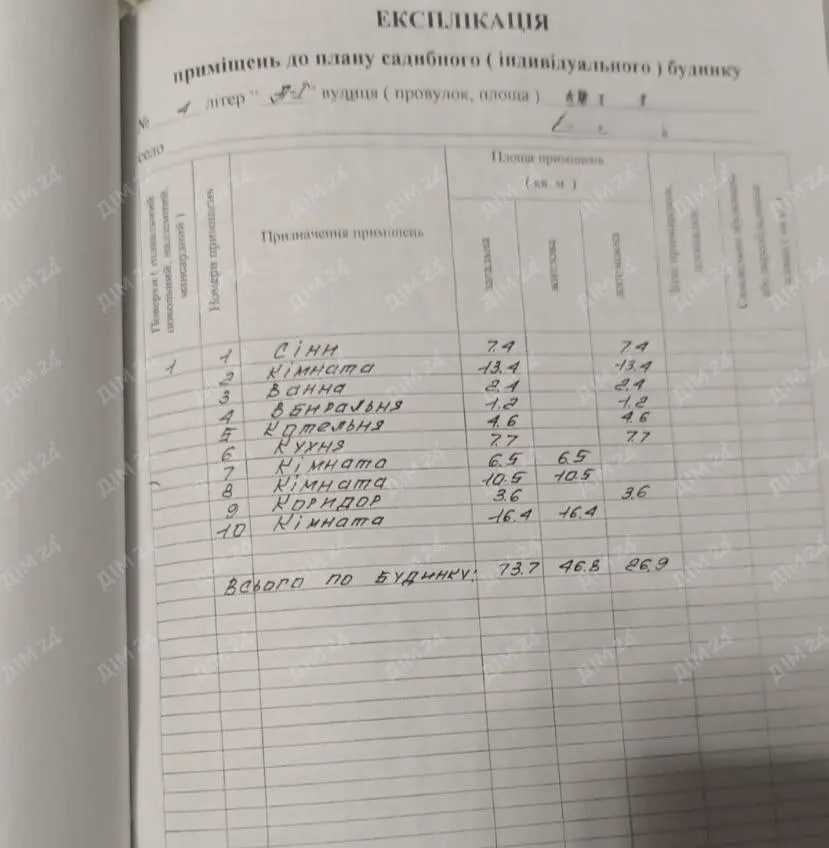 ЕКСПЛІКАЦІЯ
приміщень до плану садибного ( індивідуального ) будинку
№ 1 літер " А-І " вулиця ( провулок, площа )
село
Поверхи ( підвальний, цокольний, надземний, мансардний )
Номери приміщень
Призначення приміщень
Площа приміщень
( кв. м )
загальна
житлова
допоміжна
1 1 Сіни 7.4 7.4
2 Кімната 13.4 13.4
3 Ванна 2.4 2.4
4 Вбиральня 1.2 1.2
5 Котельня 4.6 4.6
6 Кухня 7.7 7.7
7 Кімната 6.5 6.5
8 Кімната 10.5 10.5
9 Коридор 3.6 3.6
10 Кімната 16.4 16.4
Всього по будинку: 73.7 46.8 26.9
ДІМ 24